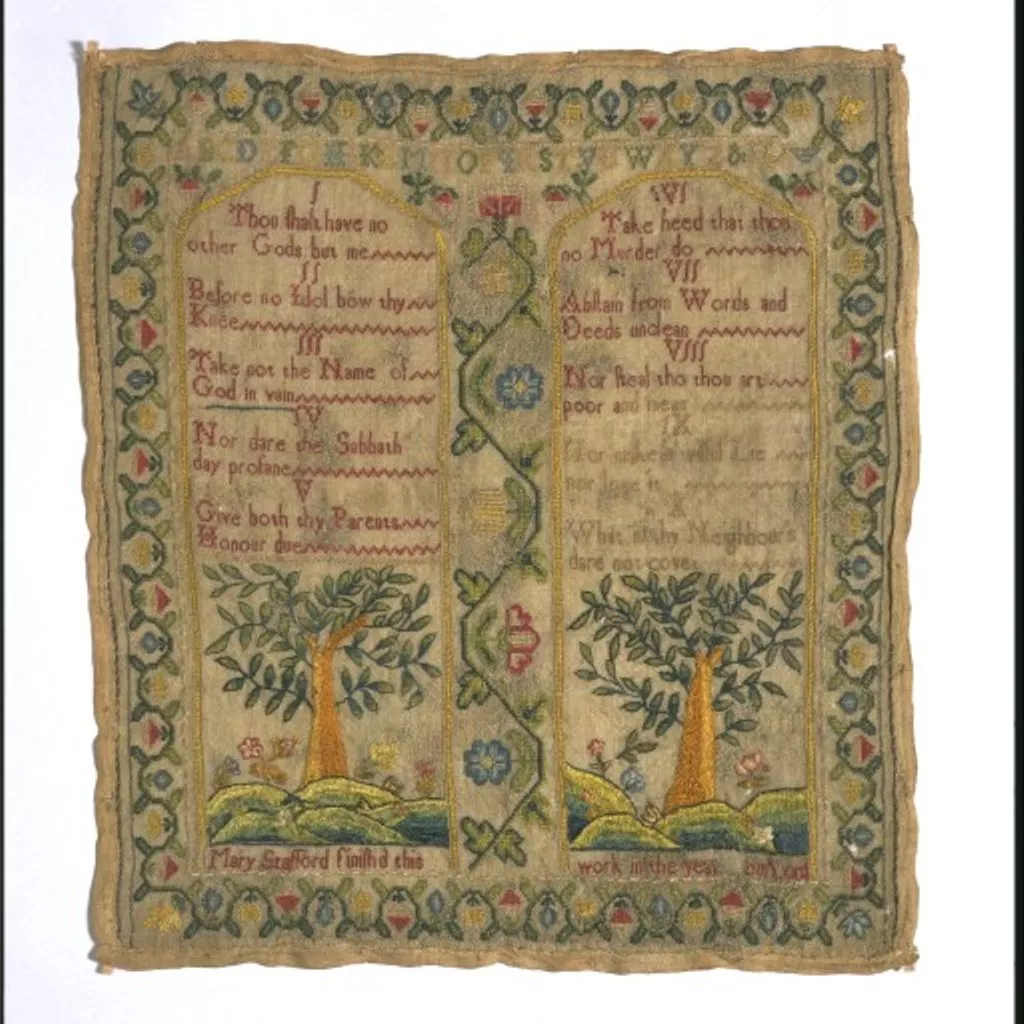 D F H K M O S V W Y &
I
Thou shalt have no
other Gods but me
II
Before no Idol bow thy
Knee
III
Take not the Name of
God in vain
IV
Nor dare the Sabbath
day profane
V
Give both thy Parents
Honour due
Mary Stafford finish'd this
VI
Take heed that thou
no Murder do
VII
Abstain from Words and
Deeds unclean
VIII
Nor steal tho thou art
poor and mean
IX
Nor make a wilful Lie
nor love it
X
What is thy Neighbour's
dare not covet
work in the year our Lord